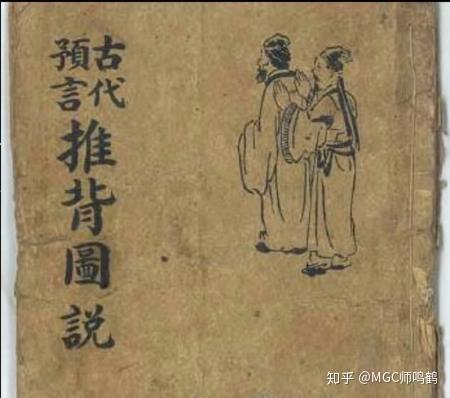 古代
預言
推背圖説
知乎 @MGC师鸣鹤